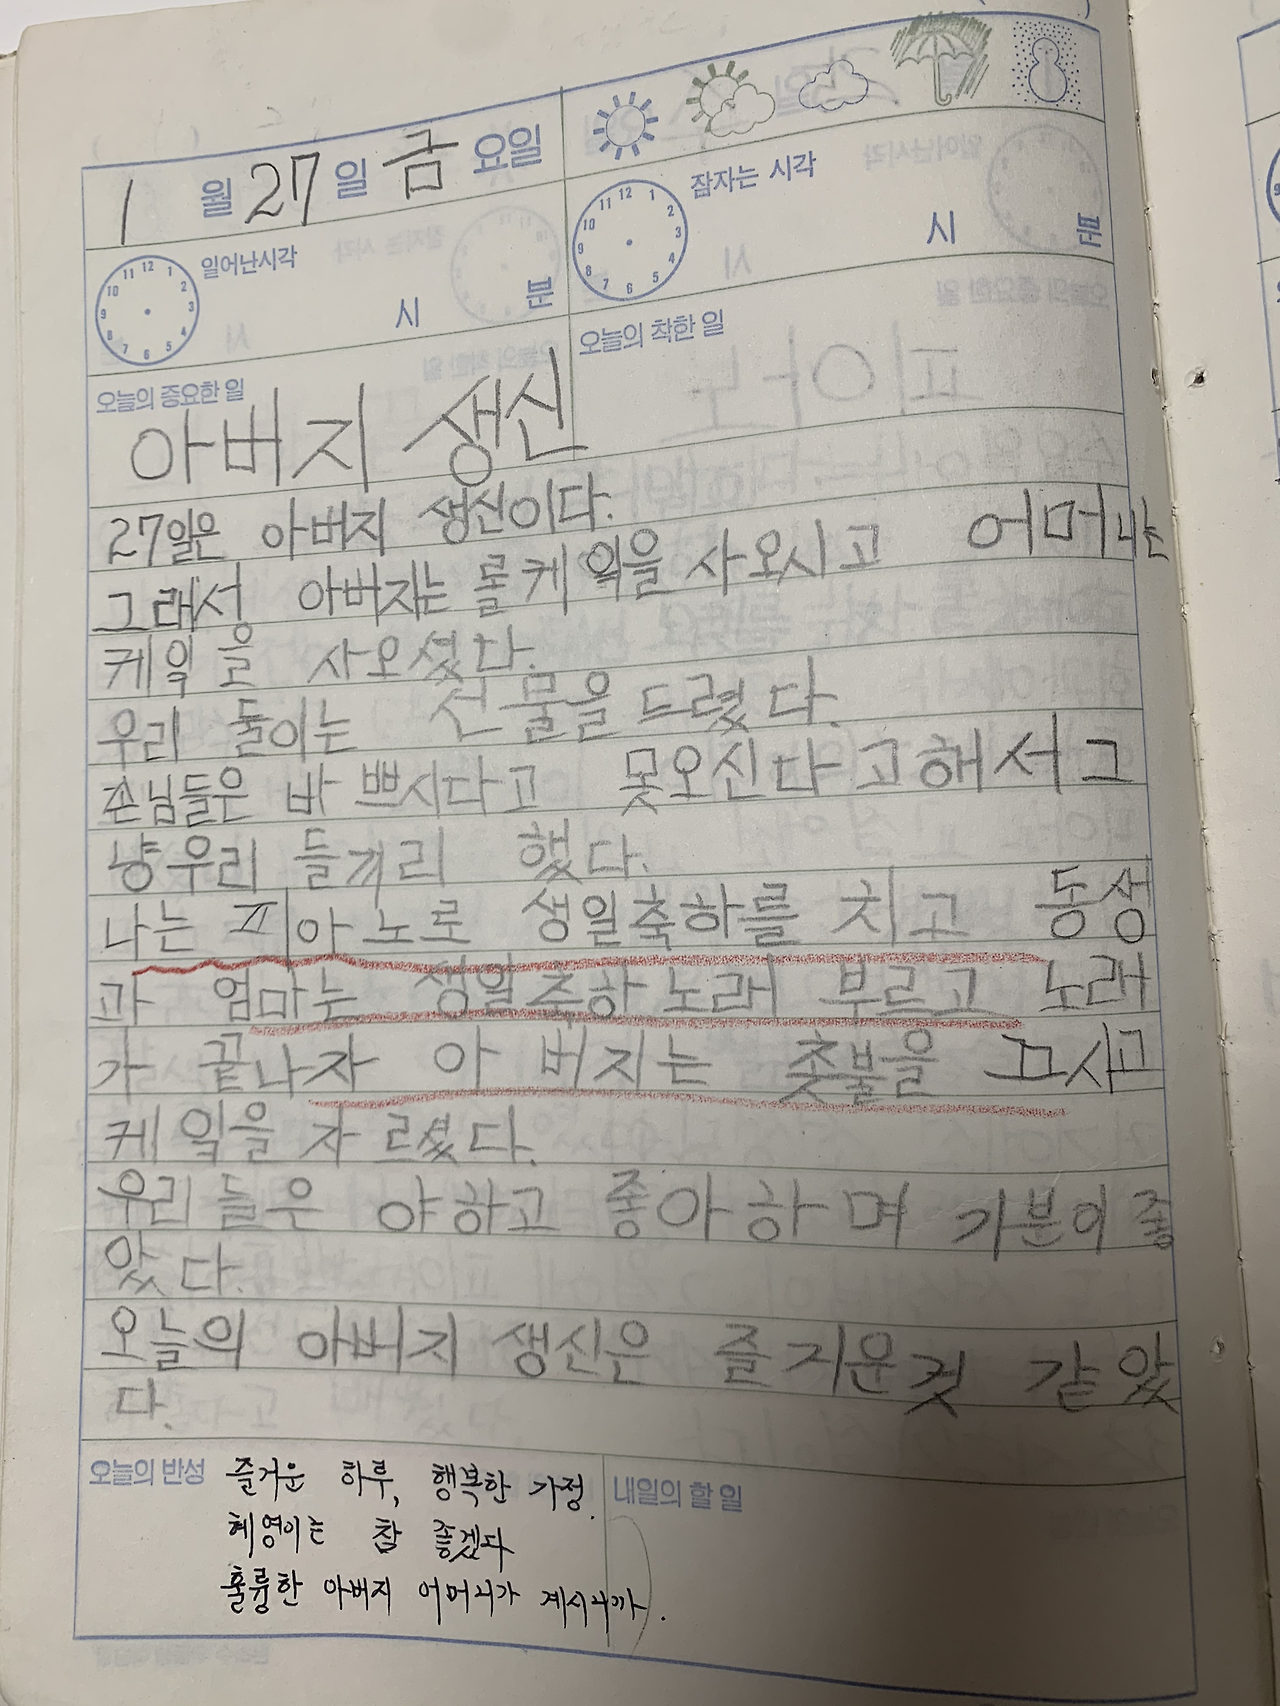 1월 27일 금요일
일어난시각
시 분
잠자는 시각
시 분
오늘의 중요한 일
아버지 생신
오늘의 착한 일
27일은 아버지 생신이다.
그래서 아버자는 롤케익을 사오시고 어머나는
케익을 사오셨다.
우리 둘이는 선물을 드렸다.
손님들은 바쁘시다고 못오신다고해서 그
냥우리 들끼리 했다.
나는 피아노로 생일축하를 치고 동생
과 엄마는 생일축하노래 부르고 노래
가 끝나자 아버지는 촛불을 끄시고
케익을 자르셨다.
우리들은 야하고 좋아하며 기분이좋
았다.
오늘의 아버지 생신은 즐거운것 같았
다.
오늘의 반성
즐거운 하루, 행복한 가정.
혜영이는 참 좋겠다
훌륭한 아버지 어머니가 계시니까.
내일의 할 일